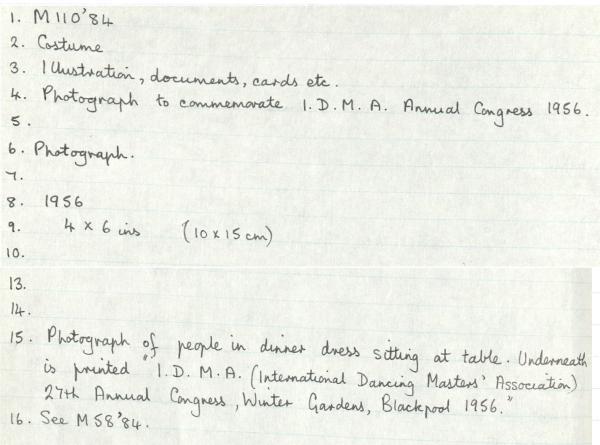 1. M110'84
2. Costume
3. Illustration, documents, cards etc.
4. Photograph to commemorate I.D.M.A. Annual Congress 1956.
5.
6. Photograph.
7.
8. 1956
9. 4 x 6 ins (10 x 15 cm)
10.
13.
14.
15. Photograph of people in dinner dress sitting at table. Underneath
is printed "I.D.M.A. (International Dancing Masters' Association)
27th Annual Congress, Winter Gardens, Blackpool 1956."
16. See M58'84.